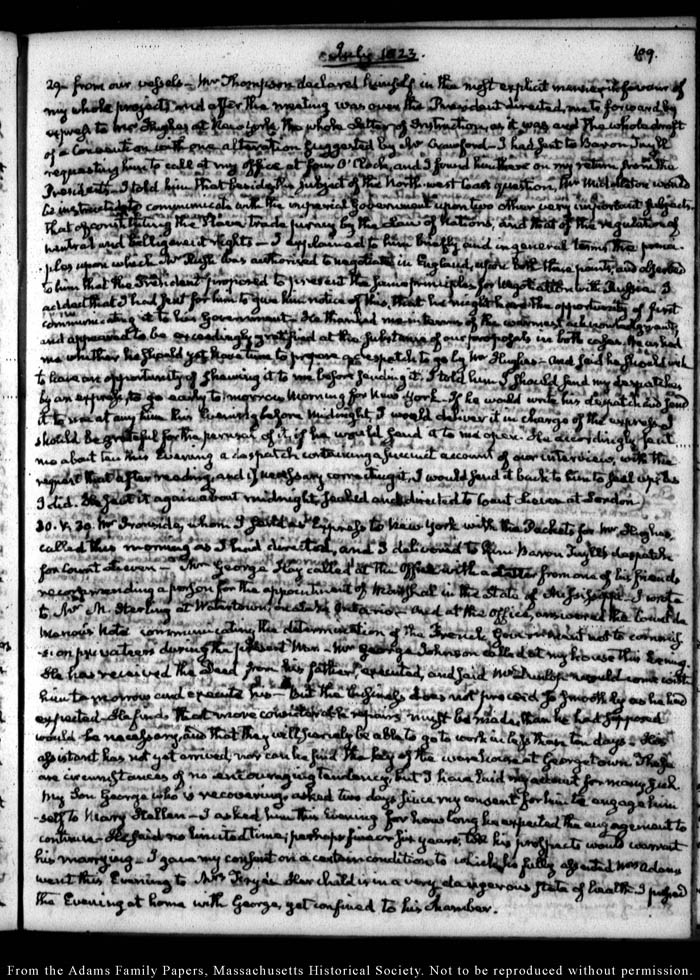 July 1823.
109.
29— from our vessels— Mr Thompson declared himself in the most explicit manner in favour of
my whole project; and after the meeting was over the President directed me to forward by
express to Mr Hughes at New York, the whole Letter of Instructions as it was and the whole draft
of a Convention with one alteration suggested by Mr Crawford— I had sent to Baron Tuyll
requesting him to call at my office at four O'Clock, and I found him there on my return from the
President's. I told him that besides the subject of the North-west Coast question, Mr Middleton would
be instructed to communicate with the imperial Government upon two other very important subjects.
That of constituting the Slave trade piracy by the Law of Nations, and that of the regulation of
neutral and belligerent rights— I explained to him briefly and in general terms the princi-
-ples upon which Mr Rush was authorised to negotiate in England, upon both those points, and observed
to him that the President proposed to present the same principles for Negotiation with Russia. I
added that I had sent for him to give him notice of this, that he might have the opportunity of first
communicating it to his Government— He thanked me in terms of the warmest acknowledgment,
and appeared to be exceedingly gratified at the substance of our proposals in both cases. He asked
me whether he should yet have time to prepare a despatch to go by Mr Hughes— And said he should wish
to have an opportunity of shewing it to me before sending it. I told him I should send my despatches
by an express, to go early to-morrow Morning for New York— If he would write his despatch and send
it to me at any time this Evening before Midnight I would deliver it in charge of the express. I
should be grateful for the perusal of it, if he would send it to me open. He accordingly sent
me about ten this Evening a despatch containing a succinct account of our interview, with the
request that after reading, and if necessary correcting it, I would send it back to him to seal up. As
I did. He sent it again about midnight, sealed and directed to Count Lieven at London.
30. V:30. Mr Ironside, whom I send as Express to New York with the Packets for Mr Hughes,
called this morning as I had directed, and I delivered to him Baron Tuyll's despatch
for Count Lieven— Mr George Hay called at the Office with a Letter from one of his friends
recommending a person for the appointment of Marshal in the State of Mississippi— I wrote
to Mr M. Sterling at Watertown, on Lake Ontario— And at the Office, answered the Count de
Menou's Note communicating the determination of the French Government not to commis-
-sion privateers during the present War— Mr George Johnson called at my house this Evening.
He has received the Deed from his father, executed, and said Mr Dunlop would come with
him to-morrow and execute his— But the business does not proceed so smoothly as he had
expected. He finds that more considerable repairs must be made, than he had supposed
would be necessary, and that they will scarcely be able to go to work in less than ten days— His
assistant has not yet arrived, nor can he find the key of the warehouse at Georgetown. These
are circumstances of no encouraging tendency, but I have laid my account for many such.
My Son George who is recovering, asked two days since my consent for him to engage him-
-self to Mary Hellen— I asked him this Evening for how long he expected the engagement to
continue— He said no limited time; perhaps five or six years, till his prospects would warrant
his marrying— I gave my consent on a certain condition to which he fully assented. Mrs Adams
went this Evening to Mrs Frye's. Her child is in a very dangerous state of health. I passed
the Evening at home with George, yet confined to his Chamber.
From the Adams Family Papers, Massachusetts Historical Society. Not to be reproduced without permission.